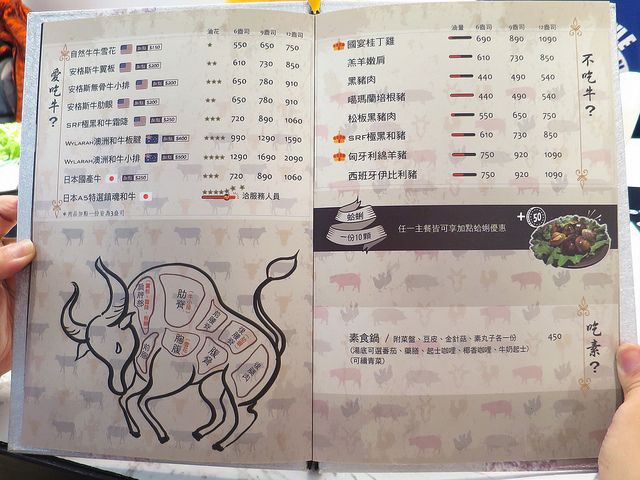 愛吃牛？
油花 6盎司 9盎司 12盎司
自然牛牛雪花 $150 ★ 550 650 750
安格斯牛翼板 $200 ★★ 610 730 850
安格斯無骨牛小排 $200 ★★ 650 780 910
安格斯牛肋眼 $200 ★★ 650 780 910
SRF極黑和牛霜降 $250 ★★★ 720 890 1060
Wylarah澳洲和牛板腱 $400 ★★★★ 990 1290 1590
Wylarah澳洲和牛小排 $500 ★★★★ 1290 1690 2090
日本國產牛 $250 ★★★★ 720 890 1060
日本A5特選鎮魂和牛 洽服務人員
肋脊
胸腹
腹脅
不吃牛？
油量 6盎司 9盎司 12盎司
國宴桂丁雞 690 890 1090
羔羊嫩肩 610 730 850
黑豬肉 440 490 540
噶瑪蘭培根豬 440 490 540
松板黑豬肉 550 650 750
SRF極黑和豬 610 730 850
匈牙利綿羊豬 750 920 1090
西班牙伊比利豬 750 920 1090
蛤蜊
一份10顆
任一主餐皆可享加點蛤蜊優惠
+50
吃素？
素食鍋 / 附菜盤、豆皮、金針菇、素丸子各一份 450
(湯底可選番茄、藥膳、起士咖哩、椰香咖哩、牛奶起士)
(可續青菜)